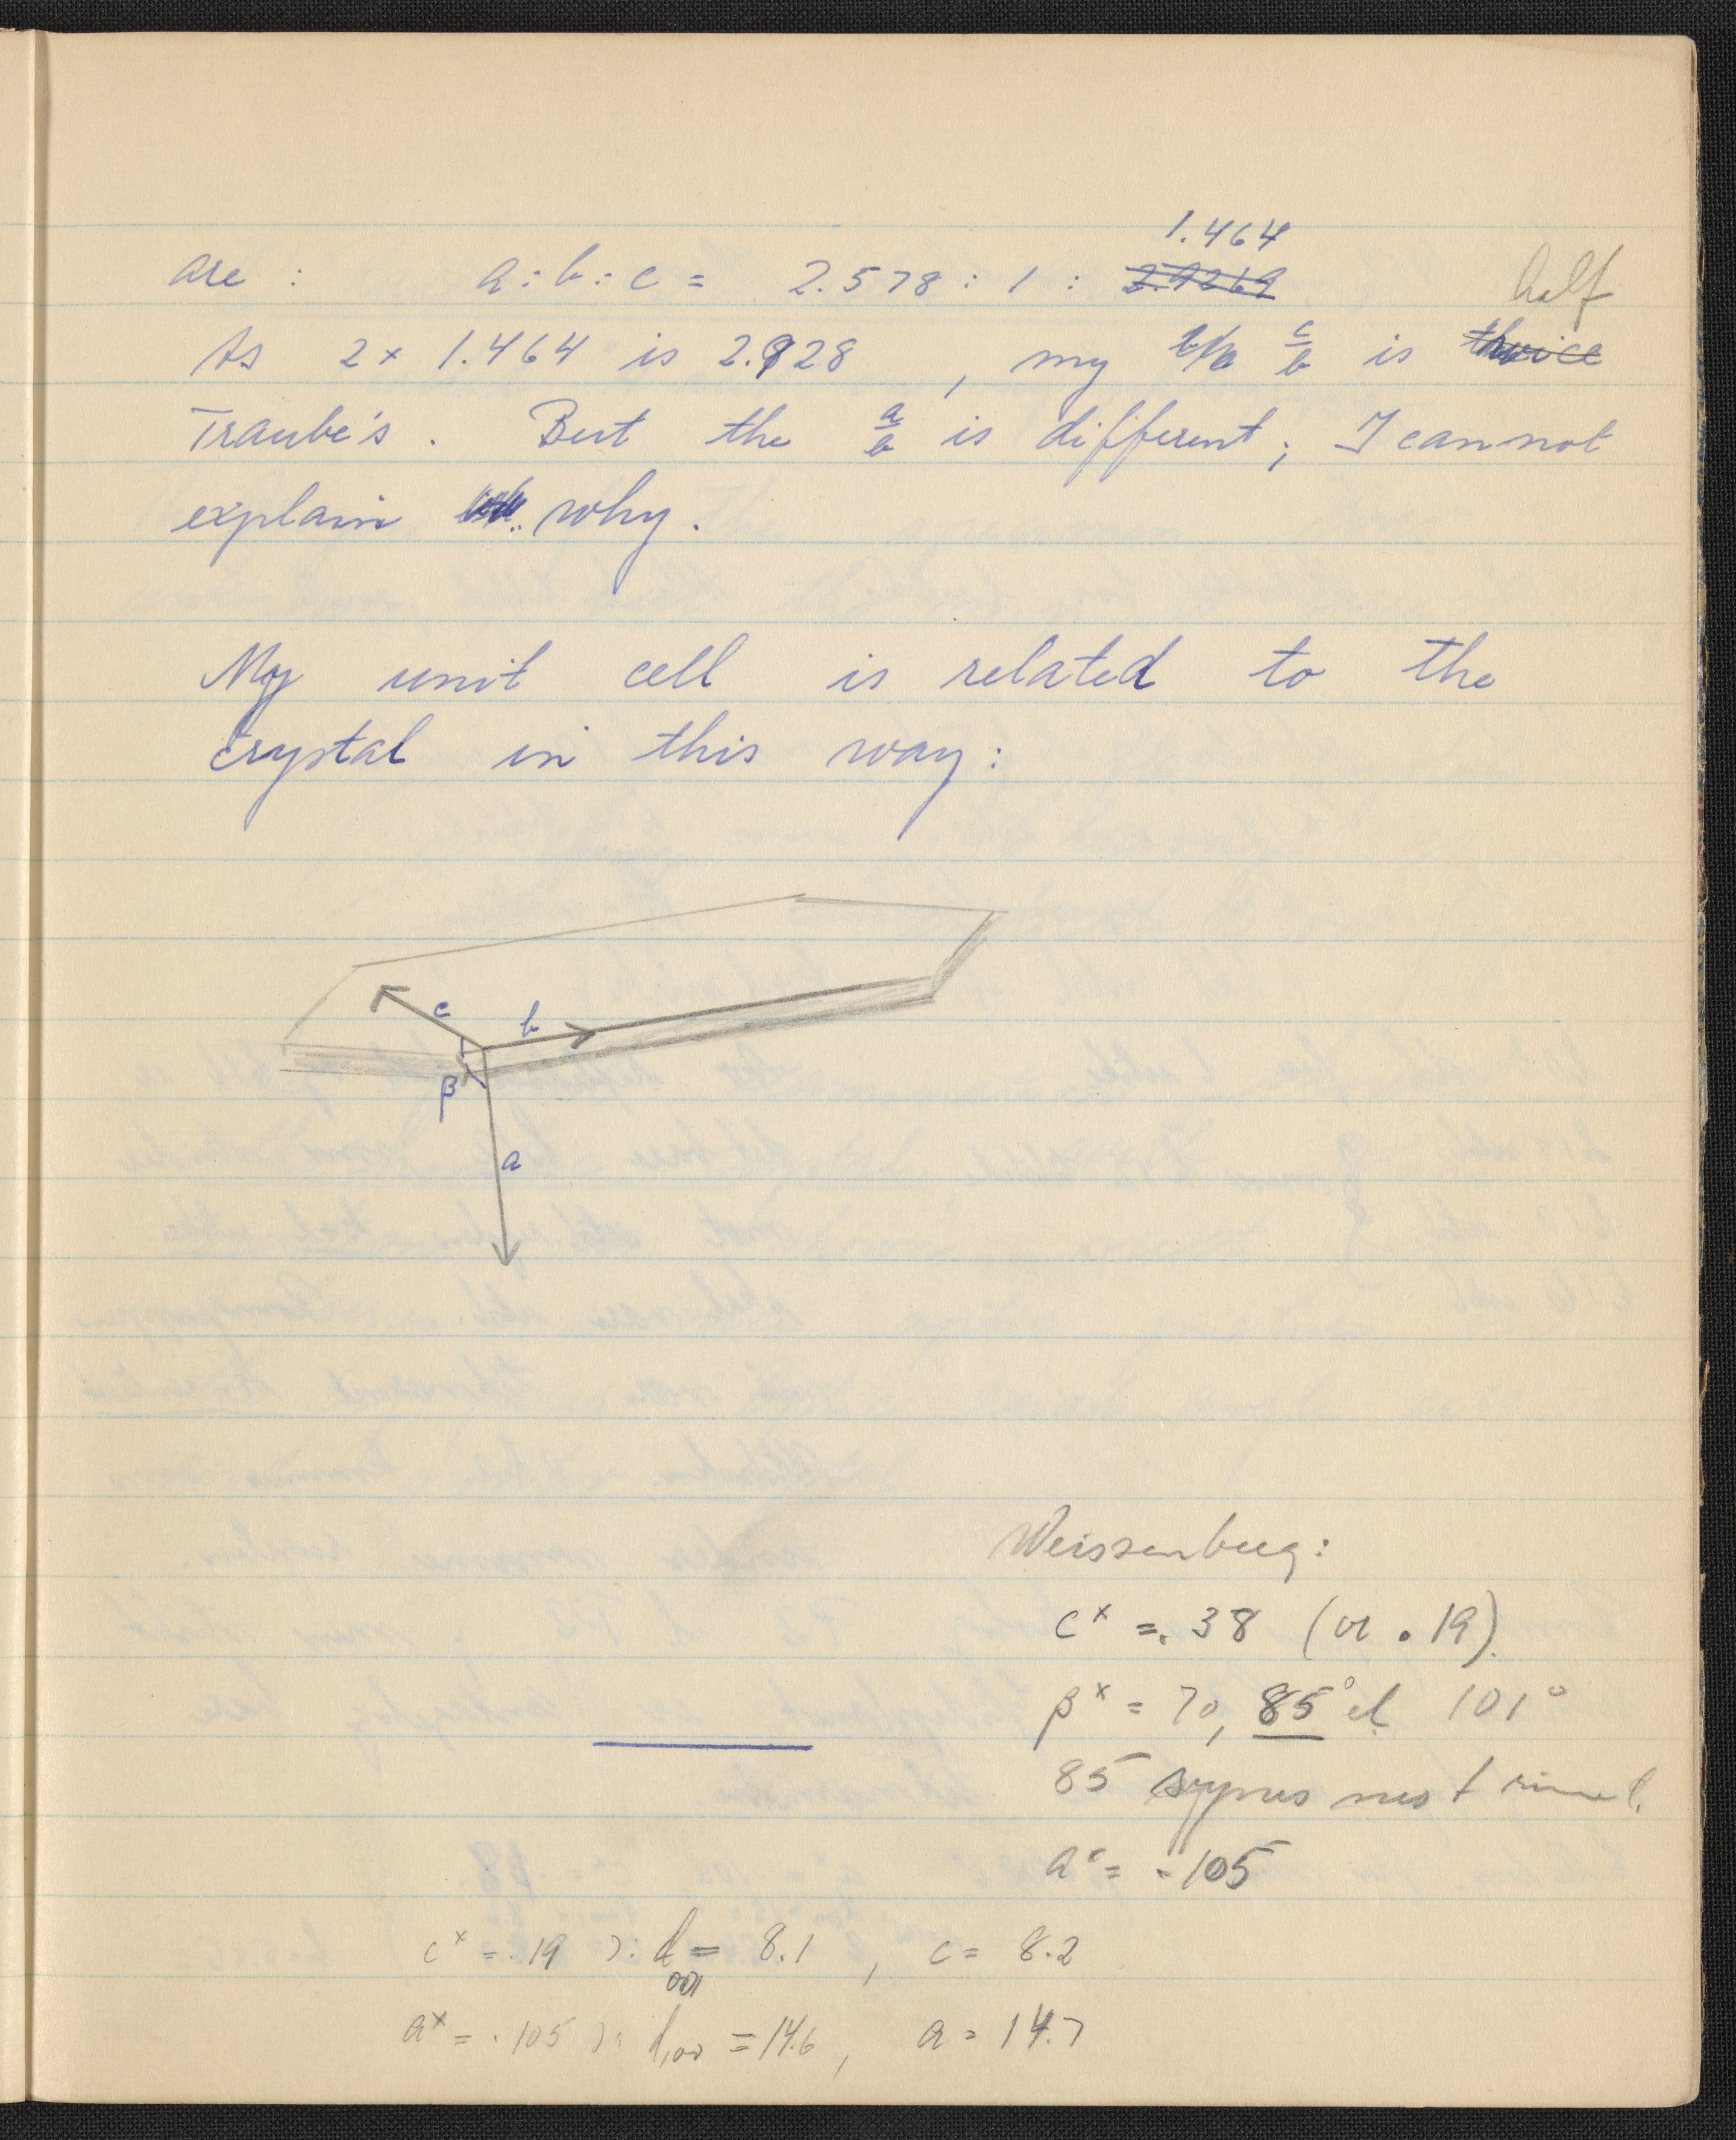 1.464
are : a : b : c = 2.578 : 1 : 2.9269 half
As 2 × 1.464 is 2.928 , my b/a c/b is thwice
Traube's . But the a/b is different ; I cannot
explain why .
My unit cell is related to the
crystal in this way :
c
b
β
a
Weissenberg :
c× = .38 (or .19).
β× = 70, 85° el 101°
85 synes mest
a× = .105
c× = .19 ɔ: d001 = 8.1 , c = 8.2
a× = .105 ɔ: d100 = 14.6 , a = 14.7